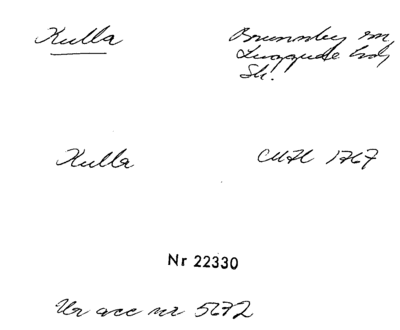 Kulla
Brunnby sn,
Luggude hd,
Sk.
Kulla
CMH 1767
Nr 22330
Ur acc nr 5672